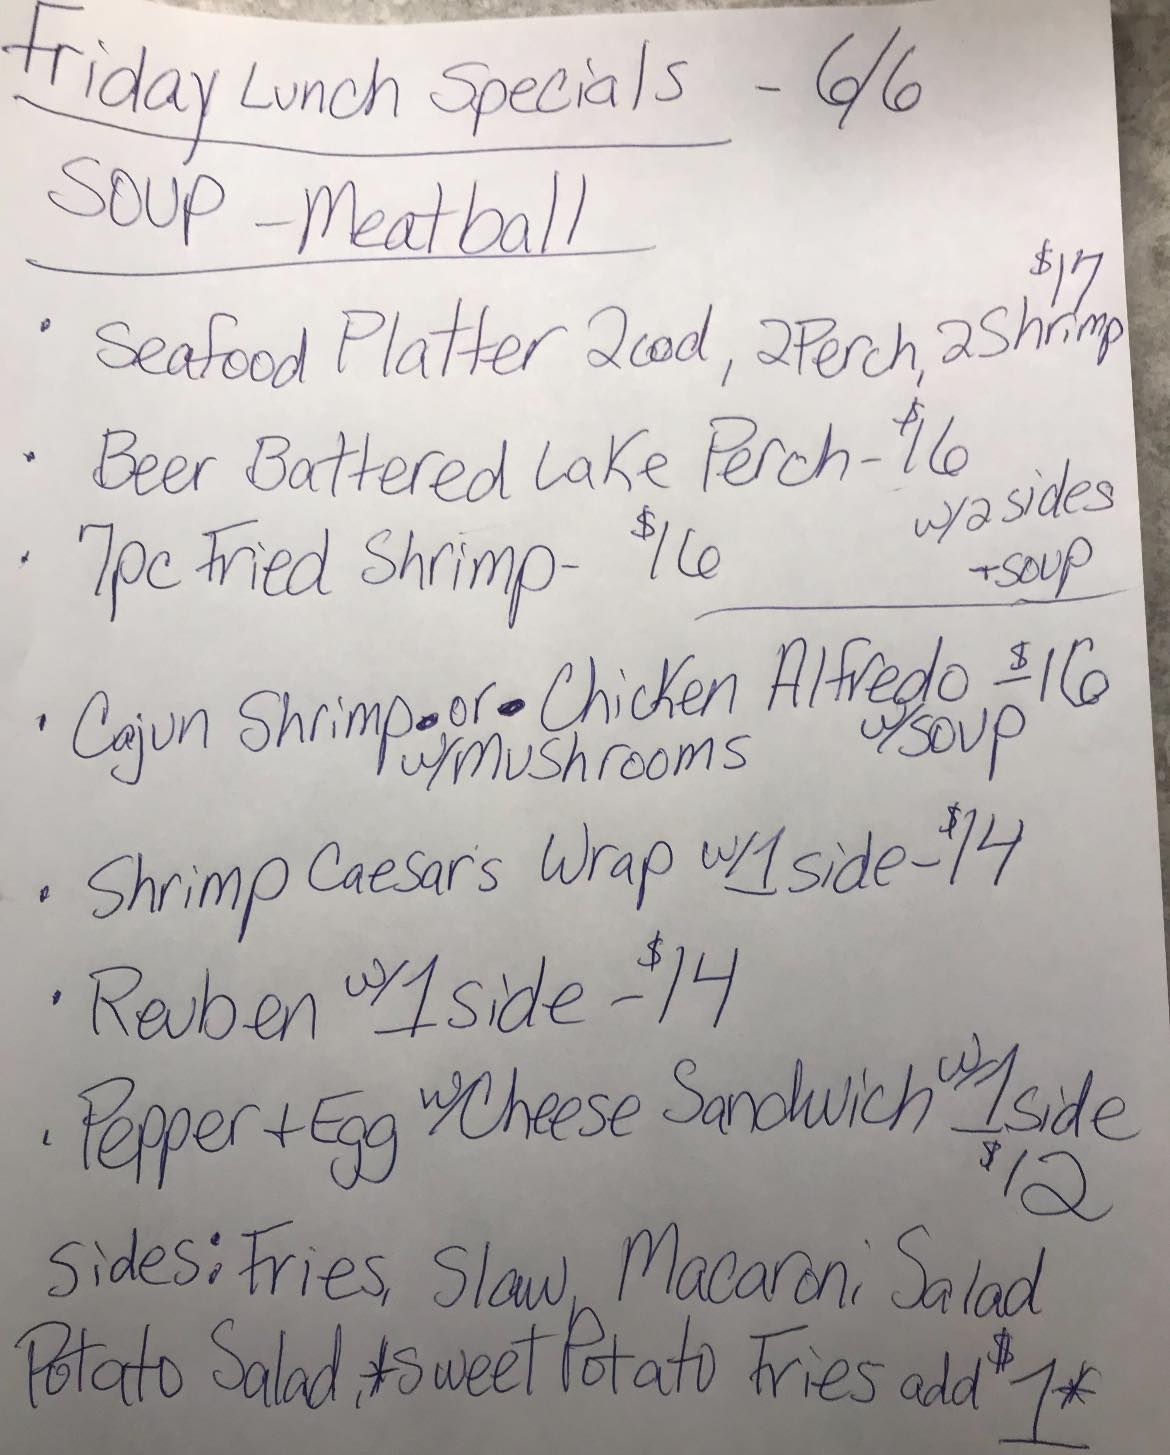 Friday Lunch Specials - 6/6
SOUP - Meatball
$17
• Seafood Platter 2cod, 2Perch, 2Shrimp
• Beer Battered Lake Perch - $16
w/2 sides
+soup
• 7pc Fried Shrimp - $16
• Cajun Shrimp •or• Chicken Alfredo $16
w/mushrooms w/soup
• Shrimp Caesar's Wrap w/1 side - $14
• Reuben w/1 side - $14
• Pepper + Egg w/Cheese Sandwich w/1 side
$12
Sides: Fries, Slaw, Macaroni Salad
Potato Salad, *sweet Potato Fries add $1*